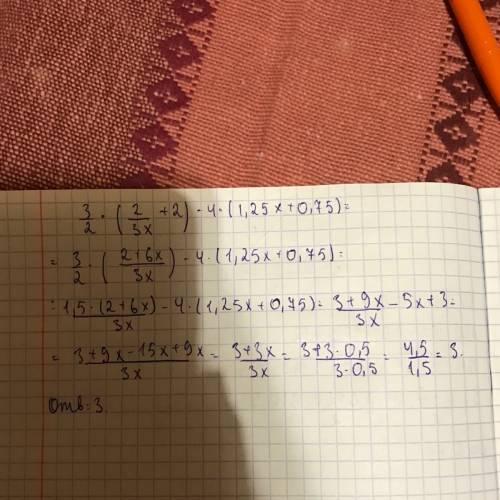 3/2 · (2/3x + 2) - 4 · (1,25x + 0,75) =
= 3/2 · (2+6x/3x) - 4 · (1,25x + 0,75) =
= 1,5 · (2+6x)/3x - 4 · (1,25x + 0,75) = 3+9x/3x - 5x + 3 =
= 3+9x-15x+9x/3x = 3+3x/3x = 3+3·0,5/3·0,5 = 4,5/1,5 = 3.
Отв: 3.